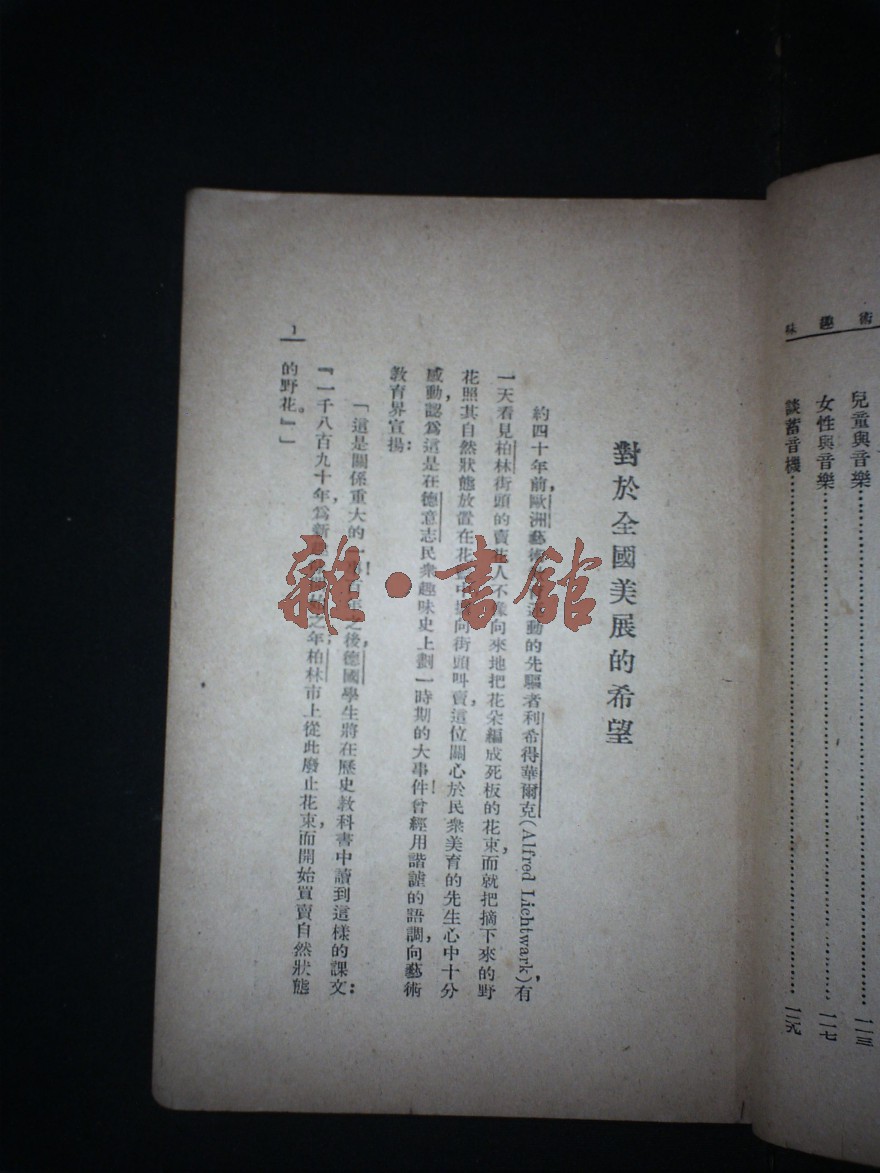 術趣味
兒童與音樂……一一三
女性與音樂……一一七
談蓄音機……一二九
對於全國美展的希望
約四十年前,歐洲藝術 運動的先驅者利希得華爾克(Alfred Lichtwark),有
一天看見柏林街頭的賣花人不像向來地把花朵編成死板的花束,而就把摘下來的野
花照其自然狀態放置在花籃中,提向街頭叫賣,這位關心於民衆美育的先生心中十分
感動,認爲這是在德意志民衆趣味史上劃一時期的大事件!曾經用諧謔的語調,向藝術
教育界宣揚:
「這是關係重大的一事!百年之後,德國學生將在歷史教科書中讀到這樣的課文:
『一千八百九十年,爲新 之年,柏林市上從此廢止花束,而開始買賣自然狀態
的野花。』」
1
雜·書館